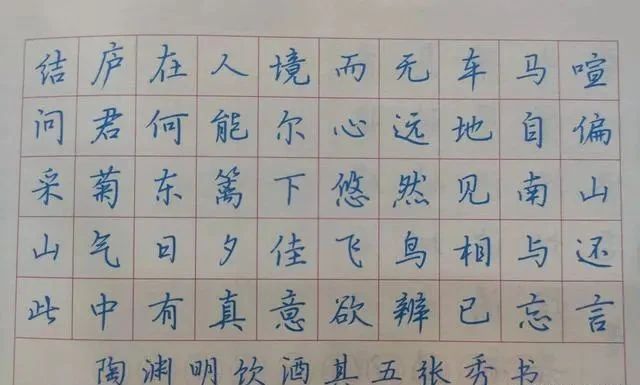 结庐在人境而无车马喧
问君何能尔心远地自偏
采菊东篱下悠然见南山
山气日夕佳飞鸟相与还
此中有真意欲辨已忘言
陶渊明饮酒其五张秀书